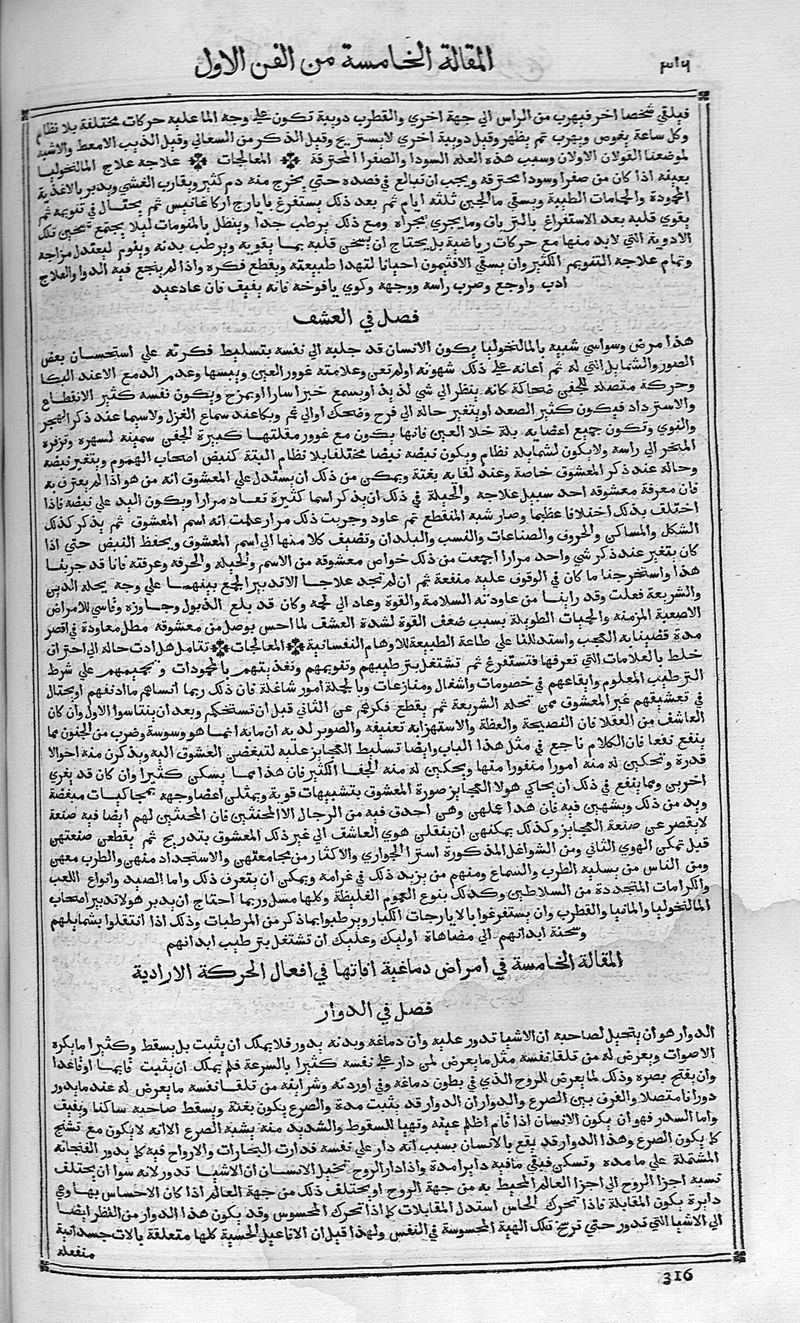 ٣١٦ المقالة الخامسة من الفن الاول
فيلقي شخصا اخر فيهرب من الراس الي جهة اخري والقطرب دويبة تكون علي وجه الما عليه حركات مختلفة بلا نظام
وكل ساعة يغوص ويهرب ثم يظهر وقيل دويبة اخري لا يستريح وقيل الذكر من السعالي وقيل الذيب الامعط والاشبه
لموضعنا القولان الاولان وسبب هذه العلة السودا والصفرا المحترقة المعالجات علاجه علاج المالنخوليا
بعينه اذا كان من صفرا وسودا محترقة ويجب ان تبالغ في فصده حتي يخرج منه دم كثير ويقارب الغشي ويدبر بالاغذية
المحمودة والحمامات الطبية ويسقي ما الجبن ثلثة ايام ثم بعد ذلك يستفرغ بايارج اركاغانيس ثم يحتال في تنويمه ثم
يقوي قلبه بعد الاستفراغ بالترياق وما يجري مجراه ومع ذلك يرطب جدا وينطل بالمنومات ليلا يجتمع تسخين تلك
الادوية التي لابد منها مع حركات رياضية بل يحتاج ان يسخن قلبه بما يقويه ويرطب بدنه وينوم ليعتدل مزاجه
وتمام علاجه التنويم الكثير وان يسقي الافثيمون احيانا لتهدا طبيعته ويقطع فكره واذا لم ينجع فيه الدوا والعلاج
ادب واوجع وضرب راسه ووجهه وكوي يافوخه فانه يفيق فان عاد عيد
فصل في العشق
هذا مرض وسواسي شبيه بالمالنخوليا يكون الانسان قد جلبه الي نفسه بتسليط فكرته علي استحسان بعض
الصور والشمايل التي له ثم اعانته علي ذلك شهوته او لم تعن وعلامته غوور العين ويبسها وعدم الدمع الا عند البكا
وحركة متصلة للجفن ضحاكة كانه ينظر الي شي لذيذ او يسمع خبرا سارا او يمزح ويكون نفسه كثير الانقطاع
والاسترداد فيكون كثير الصعدا ويتغير حاله الي فرح وضحك او الي غم وبكا عند سماع الغزل ولاسيما عند ذكر الهجر
والنوي وتكون جميع اعضايه ذابلة خلا العين فانها يكون مع غوور مقلتها كبيرة الجفن سمينه لسهره وتزفره
المتبخر الي راسه ولا يكون لشمايله نظام ويكون نبضه نبضا مختلفا بلا نظام البتة كنبض اصحاب الهموم ويتغير نبضه
وحاله عند ذكر المعشوق خاصة وعند لقايه بغتة ويمكن من ذلك ان يستدل علي المعشوق انه من هو اذا لم يعترف به
فان معرفة معشوقه احد سبيل علاجه والحيلة في ذلك ان يذكر اسما كثيرة تعاد مرارا ويكون اليد علي نبضه فاذا
اختلف بذلك اختلافا عظيما وصار شبه المنقطع ثم عاود وجربت ذلك مرارا علمت انه اسم المعشوق ثم يذكر كذلك
الشكل والمساكن والحروف والصناعات والنسب والبلدان وتضيف كلا منها الي اسم المعشوق ويحفظ النبض حتي اذا
كان يتغير عند ذكر شي واحد مرارا اجمعت من ذلك خواص معشوقه من الاسم والحيلة والحرفة وعرفته فانا قد جربنا
هذا واستخرجنا ما كان في الوقوف عليه منفعة ثم ان لم تجد علاجا الا تدبير الجمع بينهما علي وجه يحله الدين
والشريعة فعلت وقد راينا من عاودته السلامة والقوة وعاد الي لحمه وكان قد بلغ الذبول وجاوزه وقاسي الامراض
الصعبة المزمنة والحميات الطويلة بسبب ضعف القوة لشدة العشق لما احس بوصل من معشوقه مطل معاودة في اقصر
مدة قضينا به العجب واستدللنا علي طاعة الطبيعة للاوهام النفسانية المعالجات تتامل هل ادت حاله الي احتراق
خلط بالعلامات التي تعرفها فتستفرغ ثم تشتغل بترطيبهم وتنويمهم وتغذيتهم بالمحمودات وتحميمهم علي شرط
الترطيب المعلوم وايقاعهم في خصومات واشغال ومنازعات وبالجملة امور شاغلة فان ذلك ربما انساهم ما ادنفهم او يحتال
في تعشيقهم غير المعشوق ممن تحله الشريعة ثم يقطع فكرهم عن الثاني قبل ان تستحكم وبعد ان يتناسوا الاول وان كان
العاشق من العقلا فان النصيحة والعظة والاستهزا به وتعنيفه والتصوير لديه ان ما به انما هو وسوسة وضرب من الجنون مما
ينفع نفعا فان الكلام ناجع في مثل هذا الباب وايضا تسليط العجايز عليه لتبغضن العشوق اليه ويذكرن منه احوالا
قذرة وتحكين له منه امورا منفورا منها ويحكين له منه الجفا الكثير فان هذا مما يسكن كثيرا وان كان قد يغري
اخرين ومما ينفع في ذلك ان يحاكي هولا العجايز صورة المعشوق بتشبيهات قبيحة ويمثلن اعضا وجهه بمحاكيات مبغضة
ويدمن ذلك ويسهبن فيه فان هذا عملهن وهن احذق فيه من الرجال الا المخنثين فان المخنثين لهم ايضا فيه صنعة
لا يقصر عن صنعة العجايز وكذلك يمكنهن ان ينقلن هوي العاشق الي غير ذلك المعشوق بتدريج ثم يقطعن صنعتهن
قبل تمكن الهوي الثاني ومن الشواغل المذكورة اشترا الجواري والاكثار من مجامعتهن والاستجداد منهن والطرب معهن
ومن الناس من يسليه الطرب والسماع ومنهم من يزيد ذلك في غرامه ويمكن ان يتعرف ذلك واما الصيد وانواع اللعب
والكرامات المتجددة من السلاطين وكذلك بنوع الغموم الغليظة وكلها مسل وربما احتاج ان يدبر هولا تدبير اصحاب
المالنخوليا والمانيا والقطرب وان يستفرغوا بالايارجات الكبار ويرطبوا بما ذكر من المرطبات وذلك اذا انتقلوا بشمايلهم
وسحنة ابدانهم الي مضاهاة اوليك وعليك ان تشتغل بترطيب ابدانهم
المقالة الخامسة في امراض دماغية افاتها في افعال الحركة الارادية
فصل في الدوار
الدوار هو ان يتخيل لصاحبه ان الاشيا تدور عليه وان دماغه وبدنه يدور فلا يملك ان يثبت بل يسقط وكثيرا ما يكره
الاصوات ويعرض له من تلقا نفسه مثل ما يعرض لمن دار علي نفسه كثيرا بالسرعة فلم يملك ان يثبت قايما او قاعدا
وان يفتح بصره وذلك لما يعرض للروح الذي في بطون دماغه وفي اوردته وشرايينه من تلقا نفسه ما يعرض له عند ما يدور
دورانا متصلا والفرق بين الصرع والدوار ان الدوار قد يثبت مدة والصرع يكون بغتة ويسقط صاحبه ساكنا ويفيق
واما السدر فهو ان يكون الانسان اذا قام اظلم عينه وتهيا للسقوط والشديد منه يشبه الصرع الا انه لا يكون مع تشنج
كما يكون الصرع وهذا الدوار قد يقع بالانسان بسبب انه دار علي نفسه فدارت البخارات والارواح فيه كما يدور الفنجانة
المشتملة علي ما مدة وتسكن فيبقي ما فيه دايرا مدة واذا دار الروح تخيل الانسان ان الاشيا تدور لانه سوا ان يختلف
نسبه اجزا الروح الي اجزا العالم المحيط به من جهة الروح او يختلف ذلك من جهة العالم اذا كان الاحساس بها وهي
دايرة يكون المقابلة فاذا تحرك الحاس استبدل المقابلات كما اذا تحرك المحسوس وقد يكون هذا الدوار من النظر ايضا
الي الاشيا التي تدور حتي ترسخ تلك الهية المحسوسة في النفس ولهذا قيل ان الافاعيل الحسية كلها متعلقة بالات جسدانية
منفعلة
316